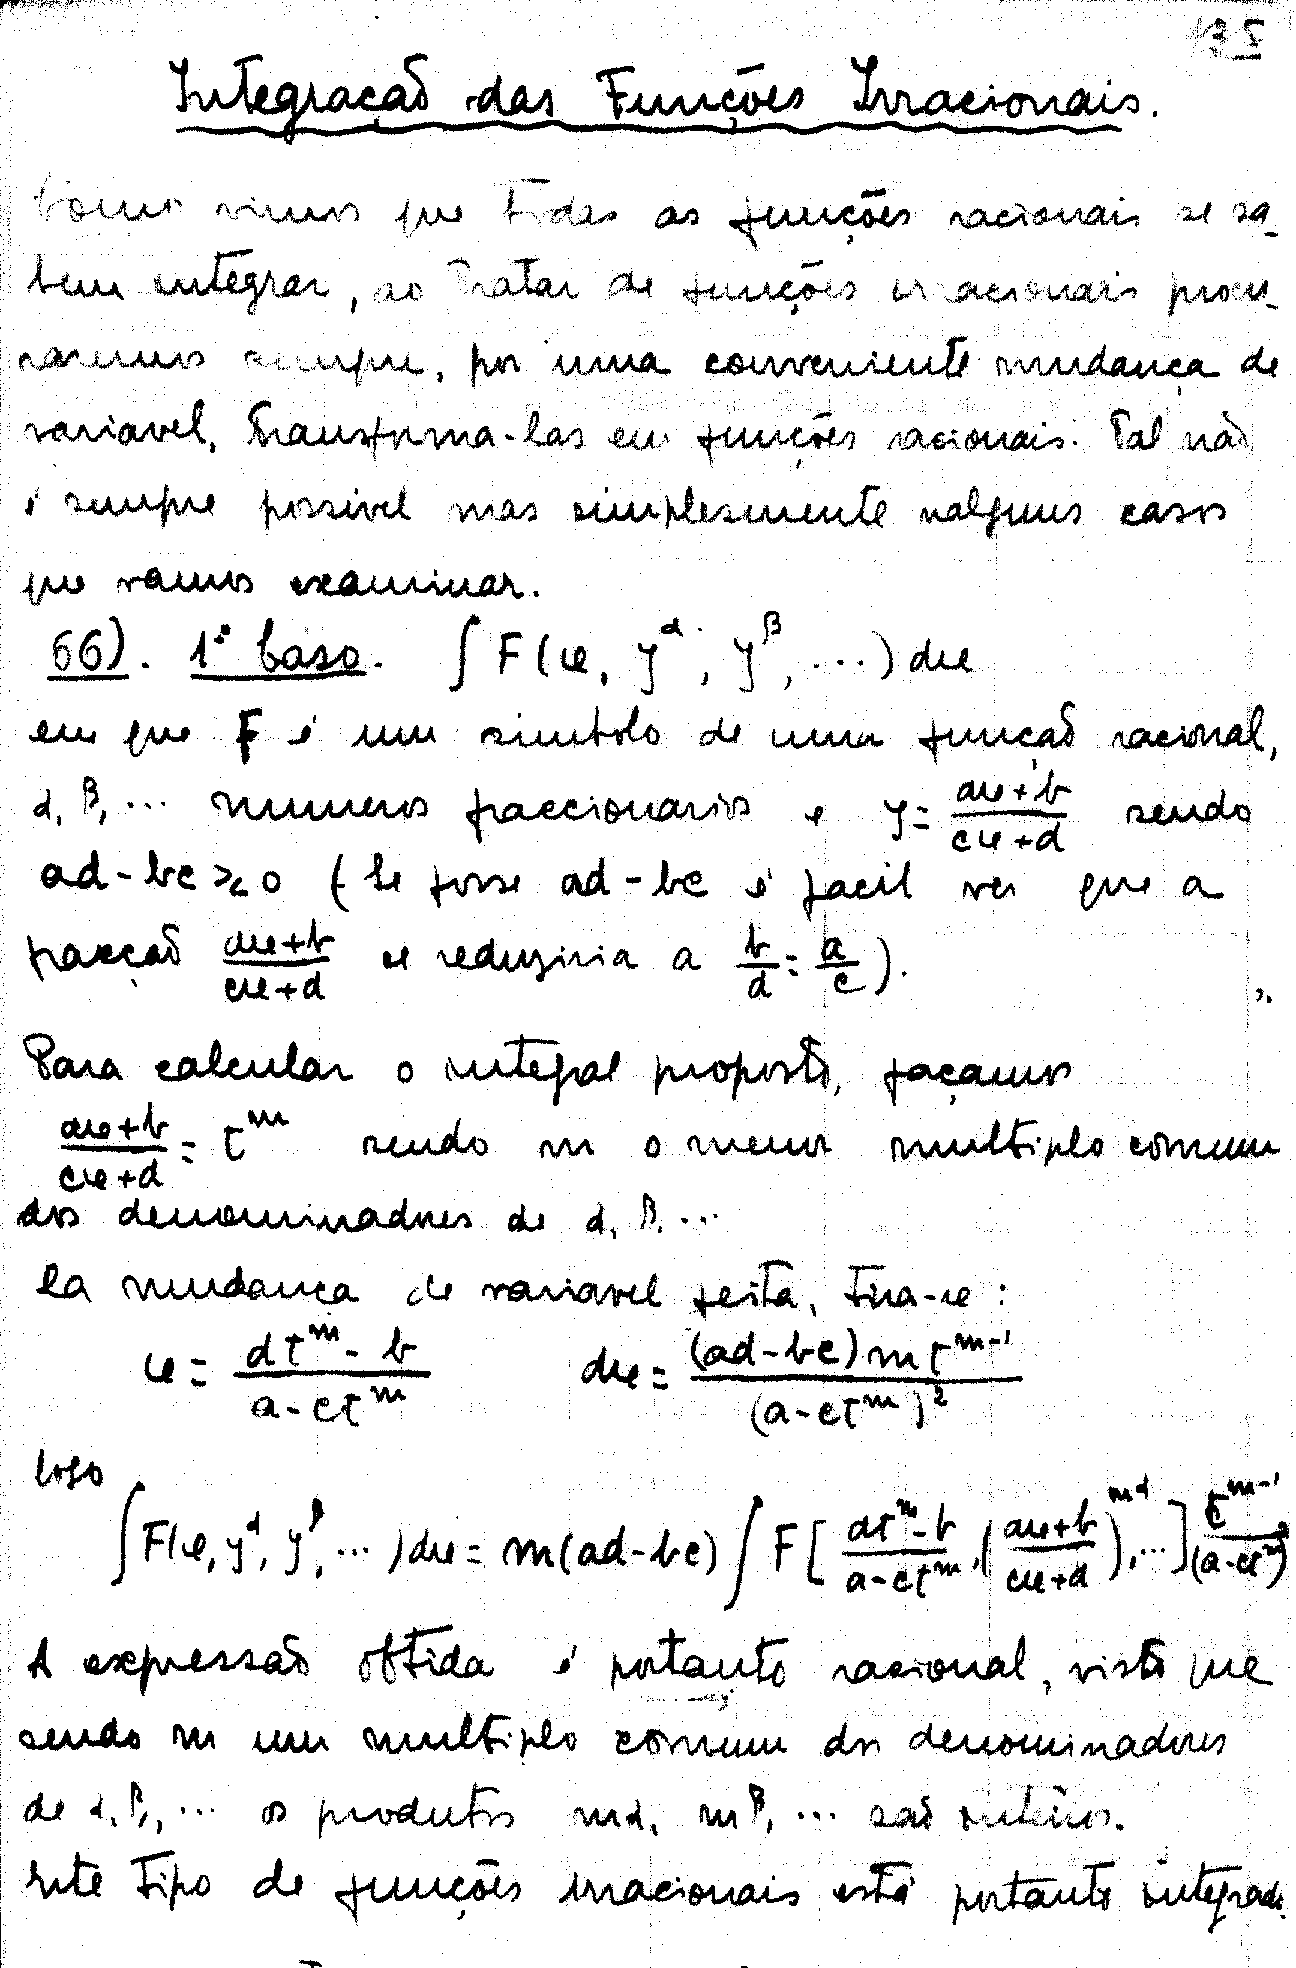 135
Integração das Funções Irracionais.
Como vimos que todas as funções racionais se sa-
bem integrar, ao tratar de funções irracionais procu-
raremos sempre, por uma conveniente mudança de
variavel, transforma-las em funções racionais. Tal não
é sempre possivel mas simplesmente nalguns casos
que vamos examinar.
66). 1º Caso. ∫ F(x, y^α, y^β, ...) dx
em que F é um simbolo de uma função racional,
α, β, ... numeros fraccionarios e y = (ax+b)/(cx+d) sendo
ad-bc ≷ 0 (Se fosse ad-bc é facil ver que a
fracção (ax+b)/(cx+d) se reduziria a b/d = a/c).
Para calcular o integral proposto, façamos
(ax+b)/(cx+d) = t^m sendo m o menor multiplo comum
dos denominadores de α, β, ...
Da mudança de variavel feita, tira-se:
x = (dt^m - b)/(a - ct^m) dx = ((ad-bc) m t^(m-1))/(a - ct^m)^2
logo
∫ F(x, y^α, y^β, ...) dx = m(ad-bc) ∫ F[(dt^m - b)/(a - ct^m), ((ax+b)/(cx+d))^mα, ...] t^(m-1)/(a - ct^m)^2
A expressão obtida é portanto racional, visto que
sendo m um multiplo comum dos denominadores
de α, β, ... os produtos mα, mβ, ... são inteiros.
Este tipo de funções irracionais está portanto integrado.